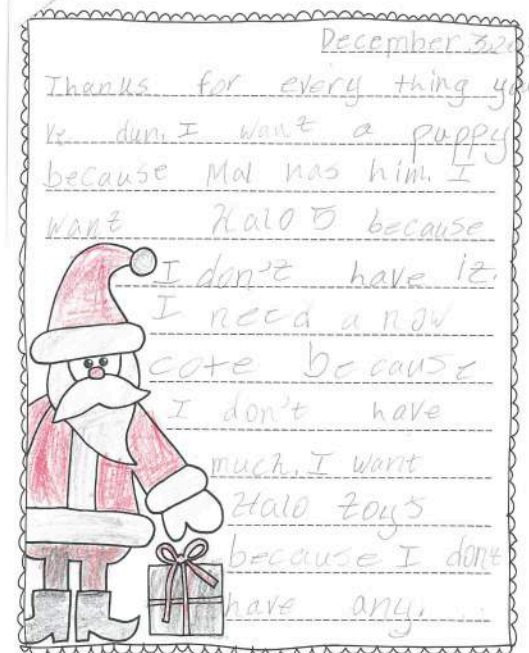 December 3,20
Thanks for every thing you
ve dun. I want a puppy
because Mal has him. I
want Halo 5 because
I don't have it.
I need a now
cote because
I don't have
much. I want
Halo toys
because I dont
have any.